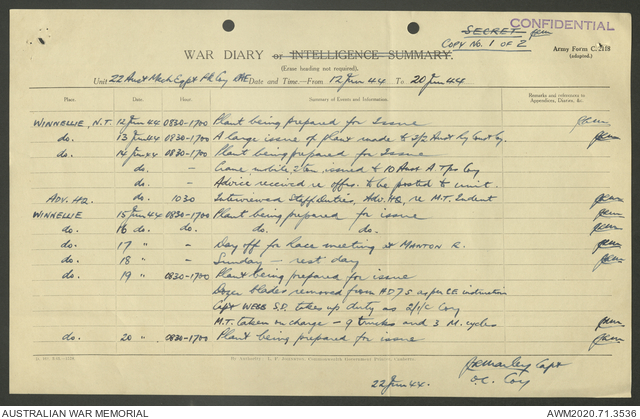 CONFIDENTIAL
SECRET
COPY No. 1 OF 2
WAR DIARY or INTELLIGENCE SUMMARY.
Army Form C.2118
(adapted.)
(Erase heading not required).
Unit 22 Aust Mech Eqpt Pk Coy RAE Date and Time—From 12 Jun 44 To 20 Jun 44
Place. Date. Hour. Summary of Events and Information. Remarks and references to Appendices, Diaries, &c.
WINNELLIE, N.T. 12 Jun 44 0830-1700 Plant being prepared for issue
do. 13 Jun 44 0930-1700 A large issue of plant made to Aust Coy
do. 14 Jun 44 0830-1700 Plant being prepared for issue
do. - Crane issued to 10 Aust A. Tps Coy
do. - Advice received re offrs. to be posted to unit.
ADV. HQ. do. 1030 Interviewed Staff Duties, Adv. HQ. re M.T. Indent
WINNELLIE 15 Jun 44 0830-1700 Plant being prepared for issue
do. 16 do. do. do. do.
do. 17 " - Day off for race meeting at MANTON R.
do. 18 " - Sunday - rest day
do. 19 " 0830-1700 Plant being prepared for issue
Dozer blades removed from HD7S as per CE instruction
Capt WEBB S.D. takes up duty as 2/i/c Coy
M.T. taken on charge - 9 trucks and 3 M. cycles
do. 20 " 0830-1700 Plant being prepared for issue
By Authority: L. F. Johnston, Commonwealth Government Printer, Canberra.
22 Jun 44.
Capt
O.C. Coy
AUSTRALIAN WAR MEMORIAL
AWM2020.71.3536